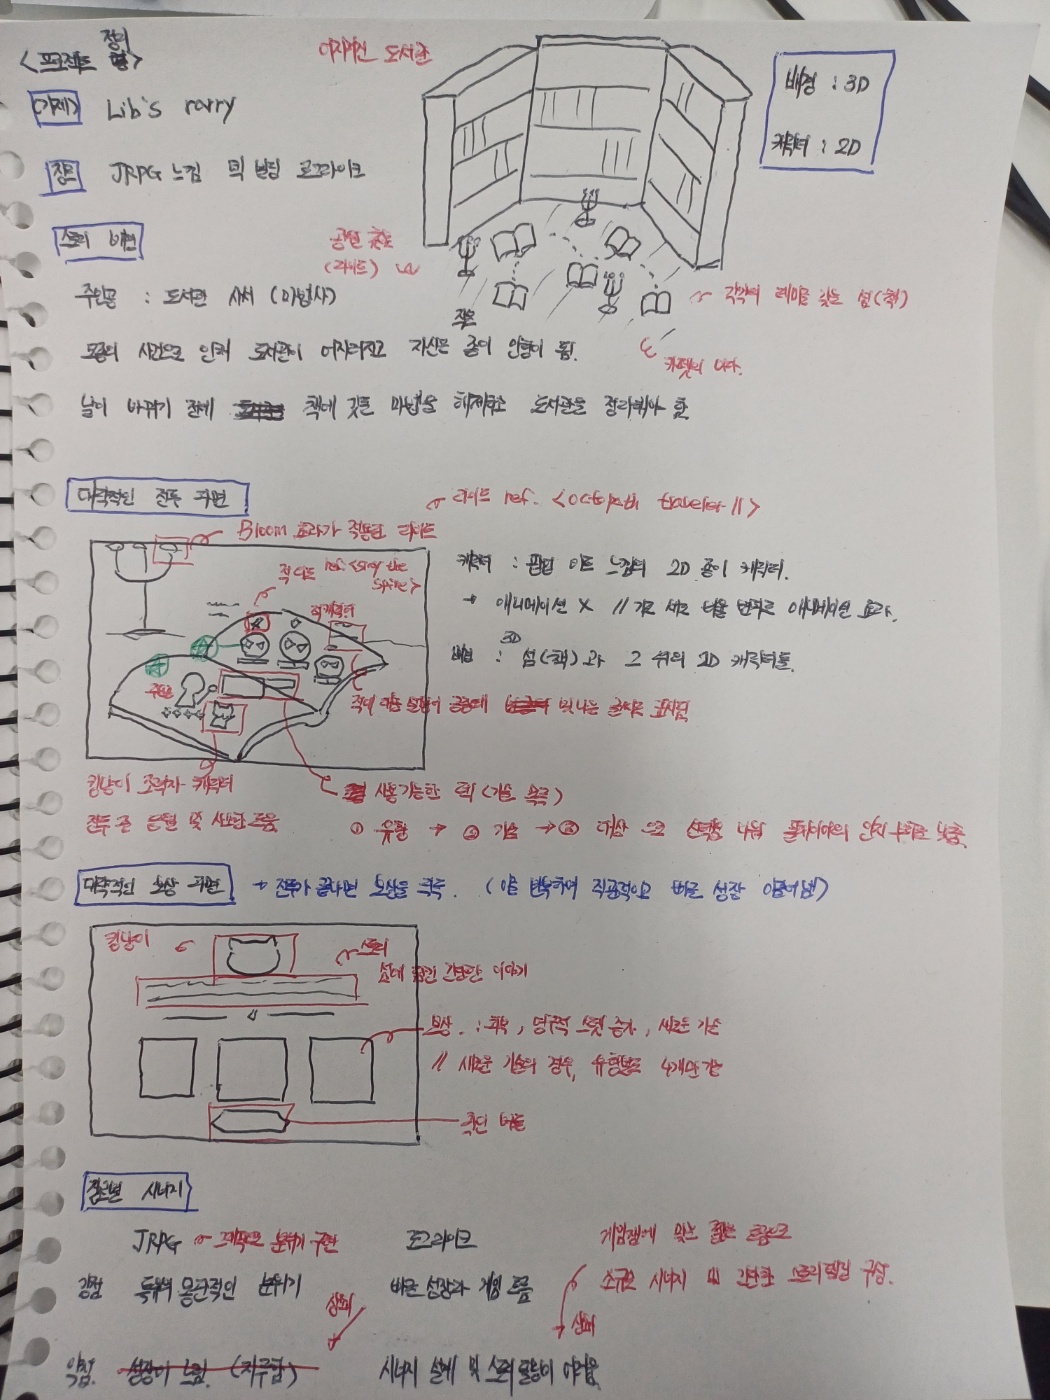 <프로젝트 정의>
어지러진 도서관
배경 : 3D
캐릭터 : 2D
(가제) Lib's rarry
장르 JRPG 느낌 덱 빌딩 로그라이크
스토리 비전
공연 촛대
(라이트)
주인공 : 도서관 사서 (마법사)
각각의 테마를 갖는 섬(책)
작은
모종의 사건으로 인해 도서관이 어지러지고 자신은 종이 인형이 됨.
카펫의 바다.
날이 바뀌기 전에 책에 깃든 마법을 해제하고 도서관을 정리해야 함.
대략적인 전투 화면
라이트 ref. <octopath traveler II>
Bloom 효과가 적용된 라이트
적 의도 ref. <slay the spire>
적 캐릭터
캐릭터 : 팝업 아트 느낌의 2D 종이 캐릭터.
→ 애니메이션 X // 가로 세로 비율 변화로 애니메이션 효과.
배경 : 3D 섬(책)과 그 위의 2D 캐릭터들.
주인공
적의 이름 설명이 공중에 빛나는 글씨로 표시됨
길냥이 조력자 캐릭터
전투 전 은열 및 사소한 도움
사용가능한 덱 (기술 목록)
① 유형 → ② 기술 → ③ 대상 으로 선택을 나눠 플레이어의 인지 부하를 낮춤.
대략적인 보상 화면 → 전투가 끝나면 보상을 획득. (이를 반복하여 직관적이고 빠른 성장 이끌어냄)
길냥이
스토리
섬에 담긴 간단한 이야기
보상 : 회복, 영구적 스탯 증가, 새로운 기술
// 새로운 기술의 경우, 유형별로 4개만 가능
확인 버튼
장르별 시너지
JRPG → 그래픽으로 분위기 구현
로그라이크
게임잼에 맞는 짧은 플레이
강점 특유의 몽환적인 분위기
빠른 성장과 게임 흐름
소규모 시너지 및 간단한 스토리텔링 구성.
상쇄
상쇄
약점. 성장이 느림. (지루함)
시너지 설계 및 스토리 몰입이 어려움